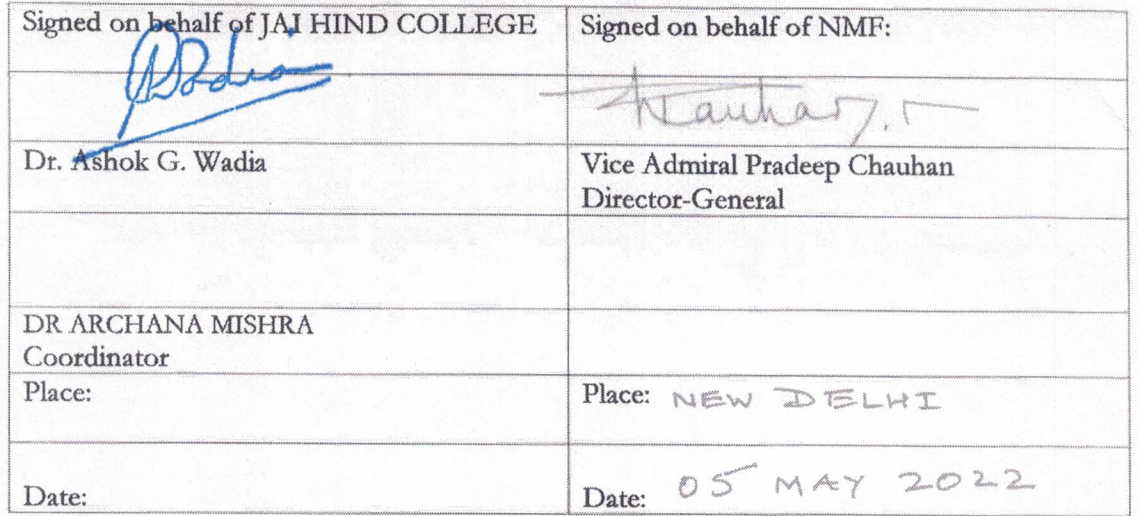 Signed on behalf of JAI HIND COLLEGE
Signed on behalf of NMF:
Dr. Ashok G. Wadia
Vice Admiral Pradeep Chauhan
Director-General
DR ARCHANA MISHRA
Coordinator
Place:
Place: NEW DELHI
Date:
Date: 05 MAY 2022